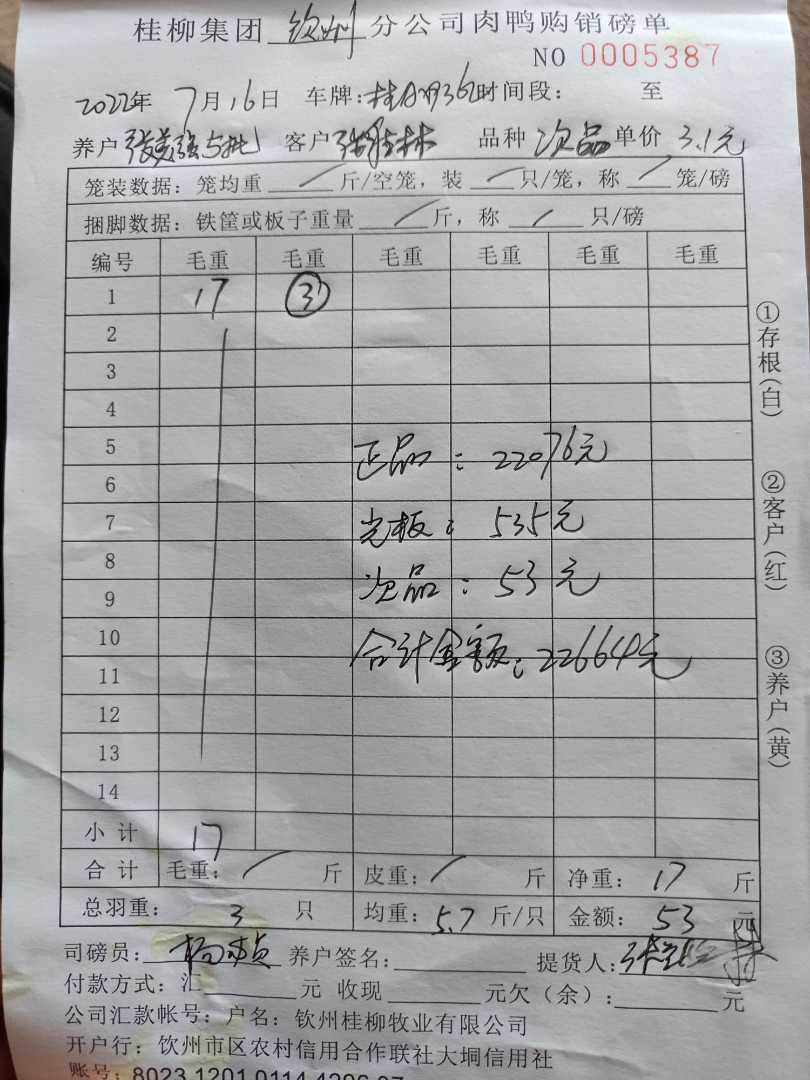 桂柳集团 钦州 分公司肉鸭购销磅单
NO 0005387
2022年 7月16日 车牌: 时间段: 至
养户 张美强5批 客户 张 林 品种 次品 单价 3.1元
笼装数据: 笼均重 / 斤/空笼, 装 / 只/笼, 称 / 笼/磅
捆脚数据: 铁筐或板子重量 / 斤, 称 / 只/磅
编号 毛重 毛重 毛重 毛重 毛重 毛重
1 17 ③
2
3
4
5 正品: 22076元
6
7 光板: 535元
8
9 次品: 53元
10
11 合计金额: 22664元
12
13
14
小计 17
合计 毛重: / 斤 皮重: / 斤 净重: 17 斤
总羽重: 3 只 均重: 5.7 斤/只 金额: 53 元
司磅员: 养户签名: 提货人:
付款方式: 汇 元 收现 元欠(余): 元
公司汇款帐号: 户名: 钦州桂柳牧业有限公司
开户行: 钦州市区农村信用合作联社大垌信用社
账号: 8023 1201 0114
①存根(白)
②客户(红)
③养户(黄)